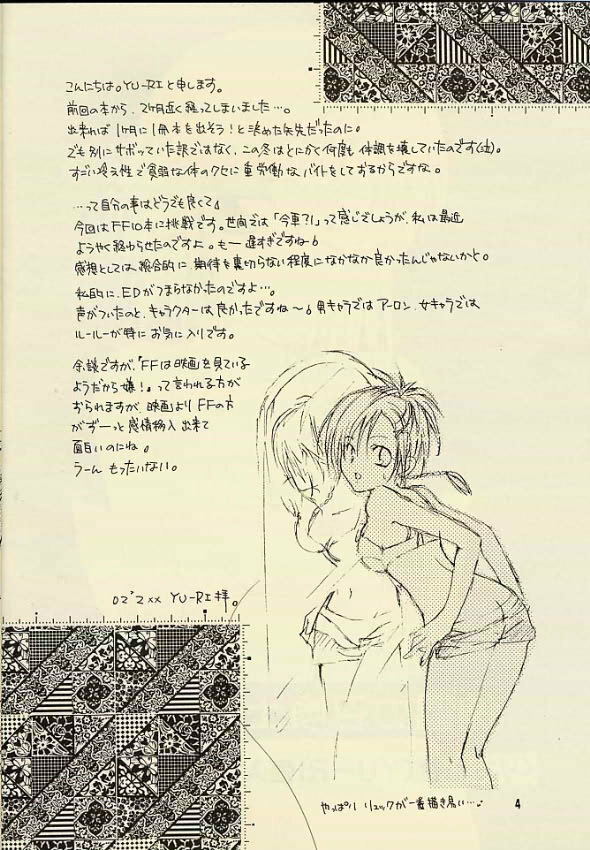 こんにちは。YU-RIと申します。
前回の本から、2ヶ月近く経ってしまいました…。
出来れば1ヶ月に1冊本を出そう!と決めた矢先だったのに。
でも別にサボッていた訳ではなく、この冬はとにかく何度も体調を壊していたのです(泣)。
すごい冷え性で貧弱な体のクセに重労働なバイトをしておるからですな。
…って自分の事はどうでも良くて
今回はFF10本に挑戦です。世間では「今更?!」って感じでしょうが、私は最近
ようやく終わらせたのですよ。もー遅すぎですね
感想としては、総合的に期待を裏切らない程度になかなか良かったんじゃないかと。
私的に、EDがつまらなかったのですよ…。
声がついたのと、キャラクターは良かったですね〜。男キャラではアーロン、女キャラでは
ルールーが特にお気に入りです。
余談ですが、「FFは映画を見ている
ようだから嫌!」って言われる方が
おられますが、映画よりFFの方
がずーっと感情移入出来て
面白いのにね。
うーんもったいない。
02'2xx YU-RI拝。
やっぱりリュックが一番描き易い…。
4